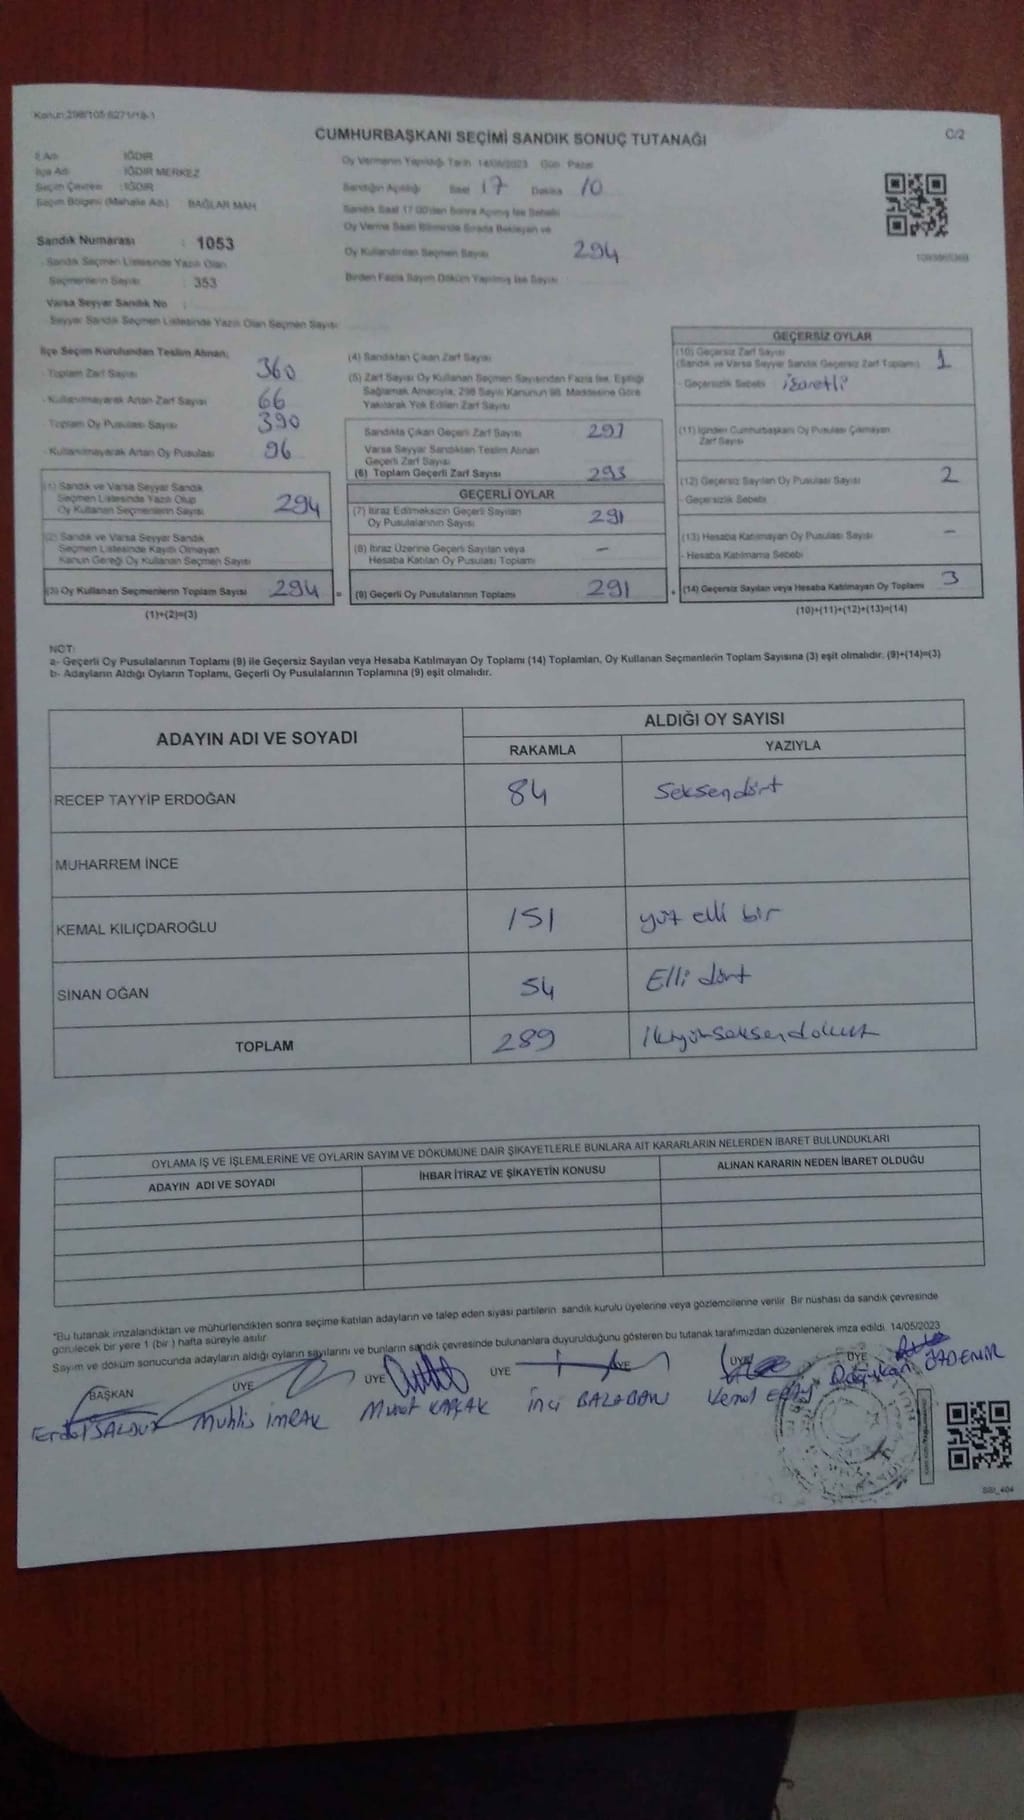 Kanun:298/105-6271/19-1
CUMHURBAŞKANI SEÇİMİ SANDIK SONUÇ TUTANAĞI
C/2
İl Adı : IĞDIR
İlçe Adı : IĞDIR MERKEZ
Seçim Çevresi : IĞDIR
Seçim Bölgesi (Mahalle Adı) : BAĞLAR MAH
Sandık Numarası : 1053
Sandık Seçmen Listesinde Yazılı Olan
Seçmenlerin Sayısı : 353
Varsa Seyyar Sandık No :
Seyyar Sandık Seçmen Listesinde Yazılı Olan Seçmen Sayısı:
Oy Vermenin Yapıldığı Tarih 14/05/2023 Gün Pazar
Sandığın Açıldığı Saat 17 Dakika 10
Sandık Saat 17:00'den Sonra Açılmış İse Sebebi
Oy Verme Saati Bitiminde Sırada Bekleyen ve
Oy Kullandırılan Seçmen Sayısı 294
Birden Fazla Sayım Döküm Yapılmış İse Sayısı
İlçe Seçim Kurulundan Teslim Alınan;
- Toplam Zarf Sayısı 360
- Kullanılmayarak Artan Zarf Sayısı 66
- Toplam Oy Pusulası Sayısı 390
- Kullanılmayarak Artan Oy Pusulası 96
(1) Sandık ve Varsa Seyyar Sandık
Seçmen Listesinde Yazılı Olup
Oy Kullanan Seçmenlerin Sayısı 294
(2) Sandık ve Varsa Seyyar Sandık
Seçmen Listesinde Kayıtlı Olmayan
Kanun Gereği Oy Kullanan Seçmen Sayısı
(3) Oy Kullanan Seçmenlerin Toplam Sayısı 294 =
(1)+(2)=(3)
(4) Sandıktan Çıkan Zarf Sayısı
(5) Zarf Sayısı Oy Kullanan Seçmen Sayısından Fazla İse, Eşitliği
Sağlamak Amacıyla, 298 Sayılı Kanunun 98. Maddesine Göre
Yakılarak Yok Edilen Zarf Sayısı
Sandıkta Çıkan Geçerli Zarf Sayısı
Varsa Seyyar Sandıktan Teslim Alınan
Geçerli Zarf Sayısı
(6) Toplam Geçerli Zarf Sayısı 293
GEÇERLİ OYLAR
(7) İtiraz Edilmeksizin Geçerli Sayılan
Oy Pusulalarının Sayısı 291
(8) İtiraz Üzerine Geçerli Sayılan veya
Hesaba Katılan Oy Pusulası Toplamı –
(9) Geçerli Oy Pusulalarının Toplamı 291 +
GEÇERSİZ OYLAR
(10) Geçersiz Zarf Sayısı
(Sandık ve Varsa Seyyar Sandık Geçersiz Zarf Toplamı) 1
- Geçersizlik Sebebi işaretli
(11) İçinden Cumhurbaşkanı Oy Pusulası Çıkmayan
Zarf Sayısı
(12) Geçersiz Sayılan Oy Pusulası Sayısı 2
- Geçersizlik Sebebi
(13) Hesaba Katılmayan Oy Pusulası Sayısı –
- Hesaba Katılmama Sebebi
(14) Geçersiz Sayılan veya Hesaba Katılmayan Oy Toplamı 3
(10)+(11)+(12)+(13)=(14)
NOT:
a- Geçerli Oy Pusulalarının Toplamı (9) ile Geçersiz Sayılan veya Hesaba Katılmayan Oy Toplamı (14) Toplamları, Oy Kullanan Seçmenlerin Toplam Sayısına (3) eşit olmalıdır. (9)+(14)=(3)
b- Adayların Aldığı Oyların Toplamı, Geçerli Oy Pusulalarının Toplamına (9) eşit olmalıdır.
ADAYIN ADI VE SOYADI
ALDIĞI OY SAYISI
RAKAMLA YAZIYLA
RECEP TAYYİP ERDOĞAN 84 Seksendört
MUHARREM İNCE
KEMAL KILIÇDAROĞLU 151 yüz elli bir
SİNAN OĞAN 54 Elli dört
TOPLAM 289 İkiyüzseksendokuz
OYLAMA İŞ VE İŞLEMLERİNE VE OYLARIN SAYIM VE DÖKÜMÜNE DAİR ŞİKAYETLERLE BUNLARA AİT KARARLARIN NELERDEN İBARET BULUNDUKLARI
ADAYIN ADI VE SOYADI İHBAR İTİRAZ VE ŞİKAYETİN KONUSU ALINAN KARARIN NEDEN İBARET OLDUĞU
*Bu tutanak imzalandıktan ve mühürlendikten sonra seçime katılan adayların ve talep eden siyasi partilerin sandık kurulu üyelerine veya gözlemcilerine verilir. Bir nüshası da sandık çevresinde
görülecek bir yere 1 (bir) hafta süreyle asılır.
Sayım ve döküm sonucunda adayların aldığı oyların sayılarını ve bunların sandık çevresinde bulunanlara duyurulduğunu gösteren bu tutanak tarafımızdan düzenlenerek imza edildi. 14/05/2023
BAŞKAN ÜYE ÜYE ÜYE ÜYE ÜYE ÜYE
Muhlis İMRAK Murat KAÇAK İnci BALABAN Kemal Doğukan ÖZDEMİR